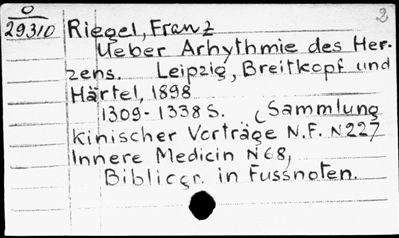 2
O
29310 Riegel, Franz
Ueber Arhythmie des Her-
zens. Leipzig, Breitkopf und
Härtel, 1898
1309-1338 S. (Sammlung
klinischer Vorträge N.F. N 227
Innere Medicin N 68,
Bibliogr. in Fussnoten.